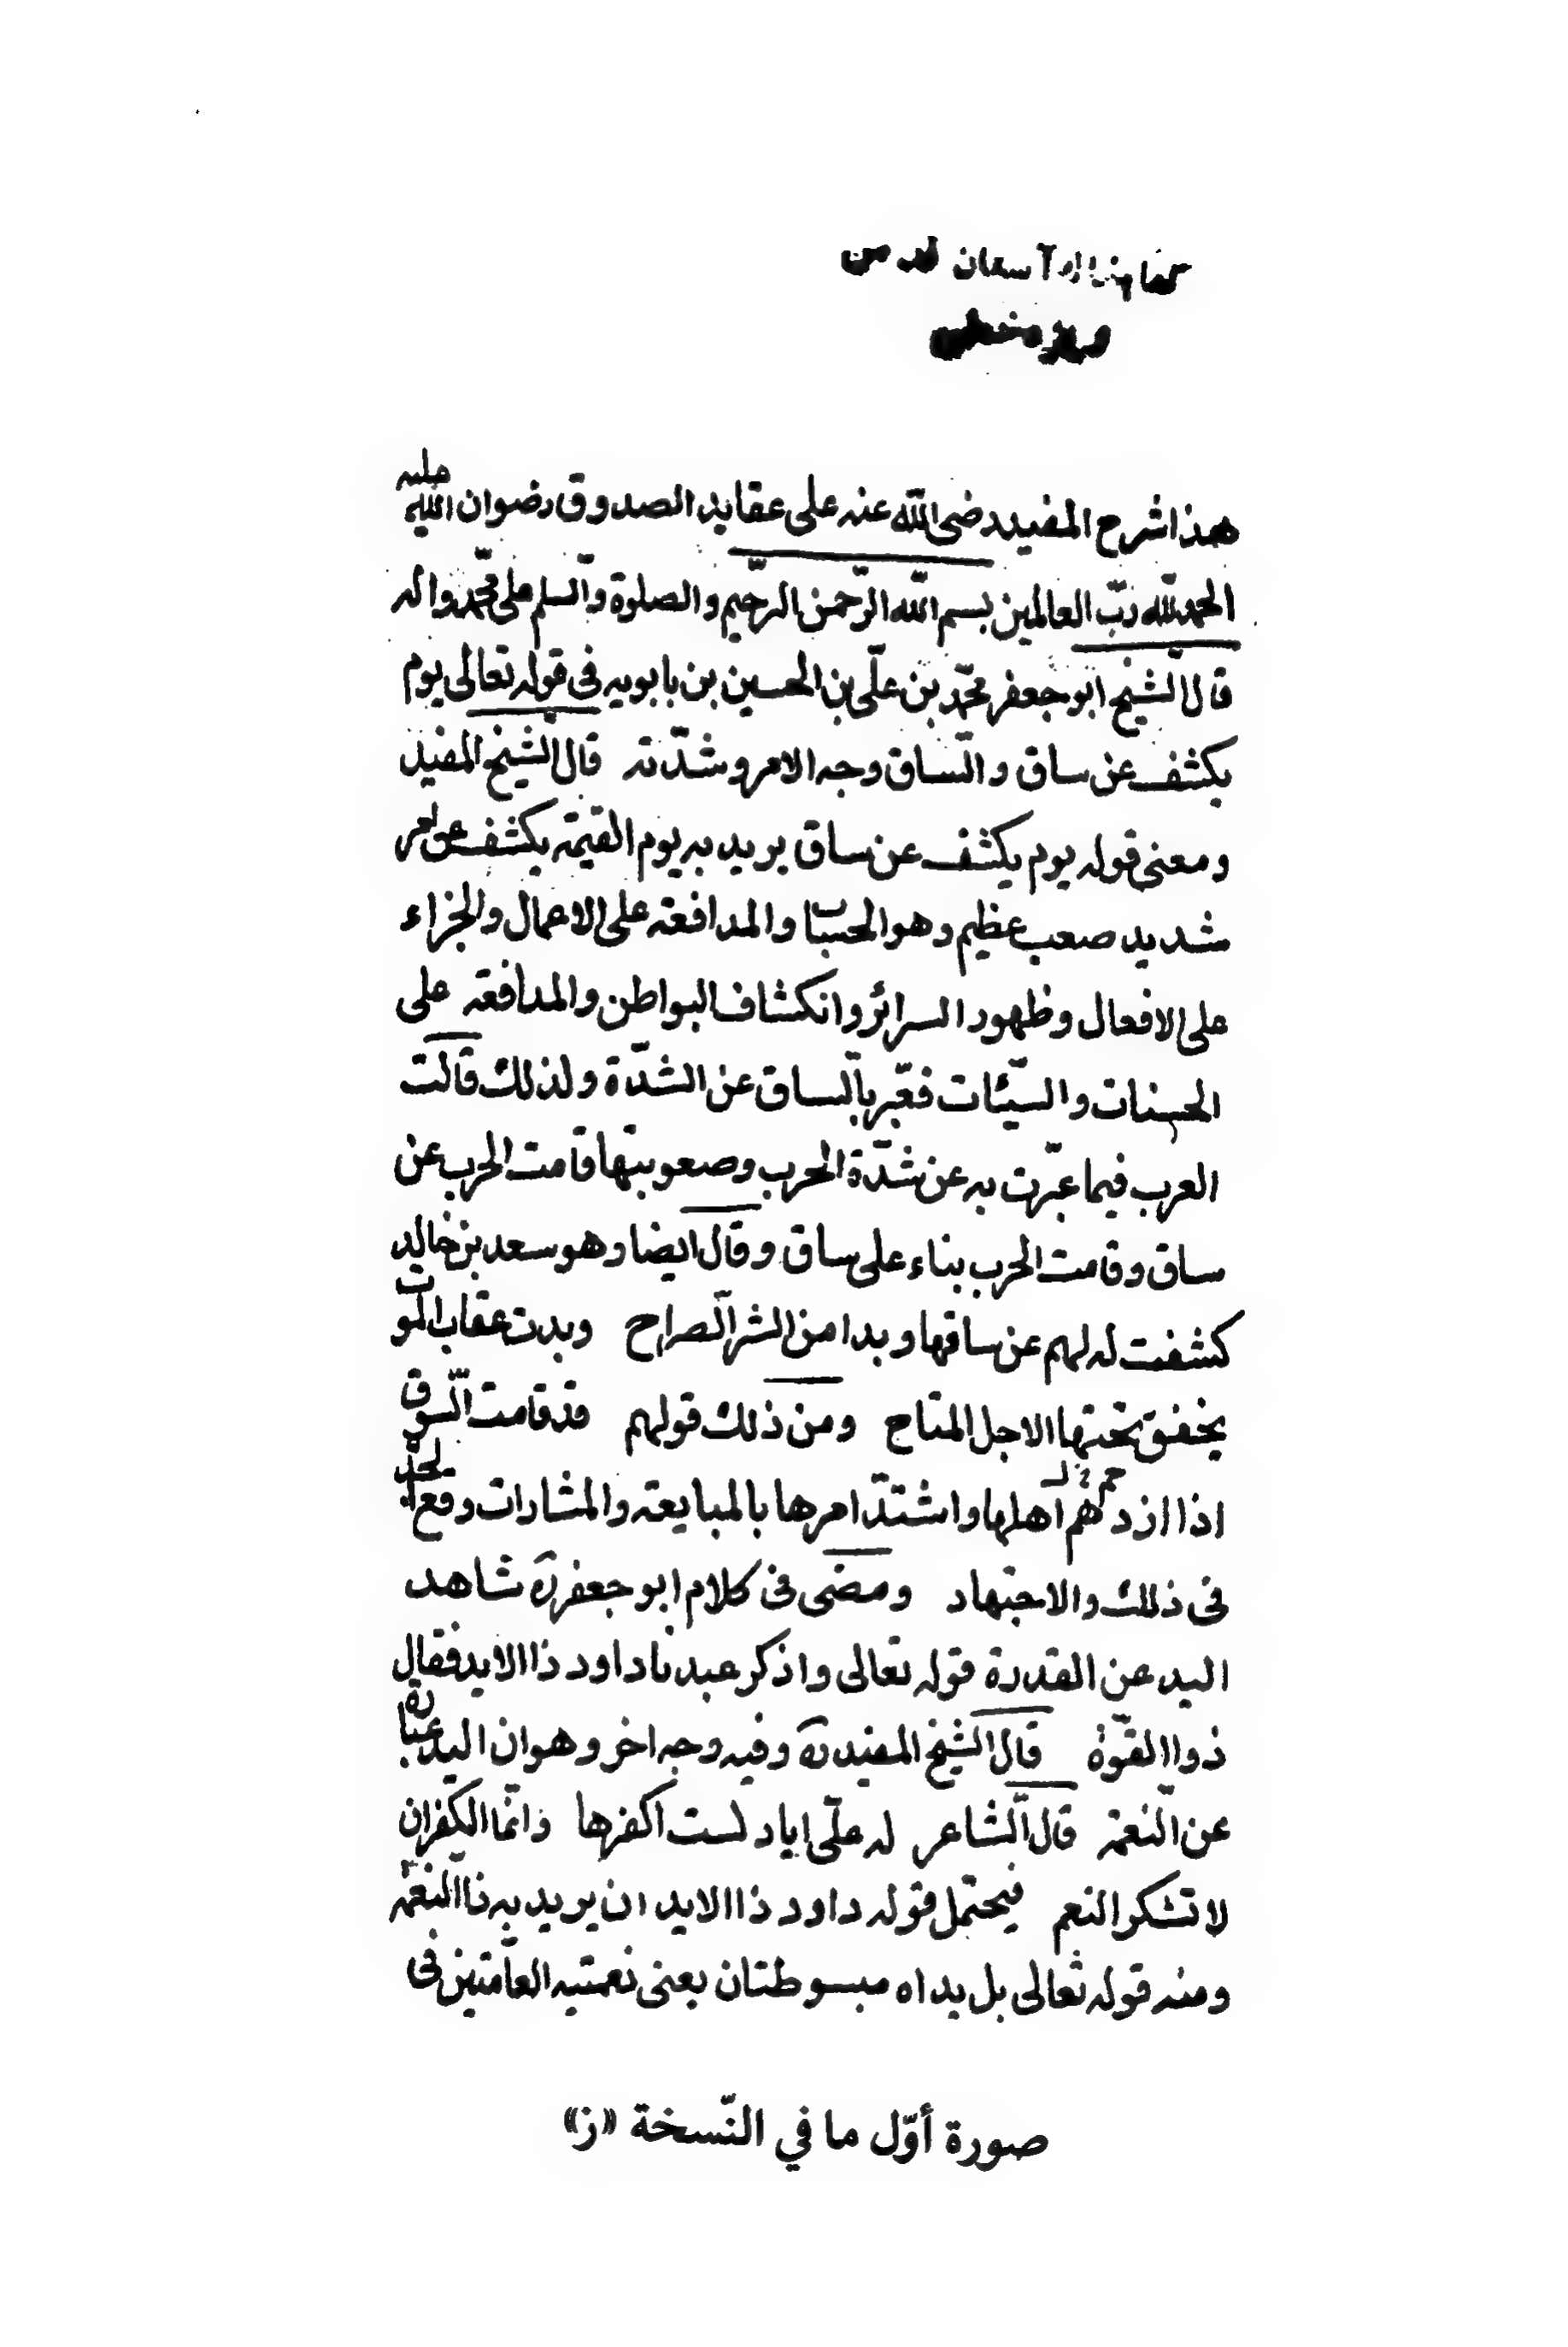 هذا شرح المفيد رضى الله عنه على عقايد الصدوق رضوان الله عليه
الحمد لله ربّ العالمين بسم الله الرّحمن الرّحيم والصلوة والسلم على محمّد واله
قال الشيخ ابو جعفر محمّد بن علّى بن الحسين بن بابويه فى قوله تعالى يوم
يكشف عن ساق والسّاق وجه الامر وشدّته قال الشيخ المفيد
ومعنى قوله يوم يكشف عن ساق يريد به يوم القيمة يكشف عن امر
شديد صعب عظيم وهو الحساب والمدافعة على الاعمال والجزاء
على الافعال وظهور السرائر وانكشاف البواطن والمدافعة على
الحسنات والسيّئات فعبّر بالساق عن الشدّة ولذلك قالت
العرب فيما عبّرت به عن شدّة الحرب وصعوبتها قامت الحرب عن
ساق وقامت الحرب بناء على ساق وقال ايضا وهو سعد بن خالد
كشفت له لهم عن ساقها وبدا من الشر الصراح وبدت عقاب الموت
يخفق تحتها الاجل المتاح ومن ذلك قولهم قد قامت السّوق
اذا ازدهم اهلها واشتدّ امرها بالمبايعة والمشارات وقع الجد
فى ذلك والاجتهاد ومضى فى كلام ابو جعفر ره شاهد
اليد عن القدرة قوله تعالى واذكر عبدنا داود ذا الايد فقال
ذوا القوّة قال الشيخ المفيد ره وفيه وجه اخر وهو ان اليد عبارة
عن النّعمة قال الشاعر له علّى اياد لست اكفرها وانّما الكفران
لا تشكر النعم فيحتمل قوله داود ذا الايد ان يريد به ذا النعمة
ومنه قوله تعالى بل يداه مبسوطتان يعنى نعمتيه العامّتين فى
صورة أوّل ما في النّسخة «ز»